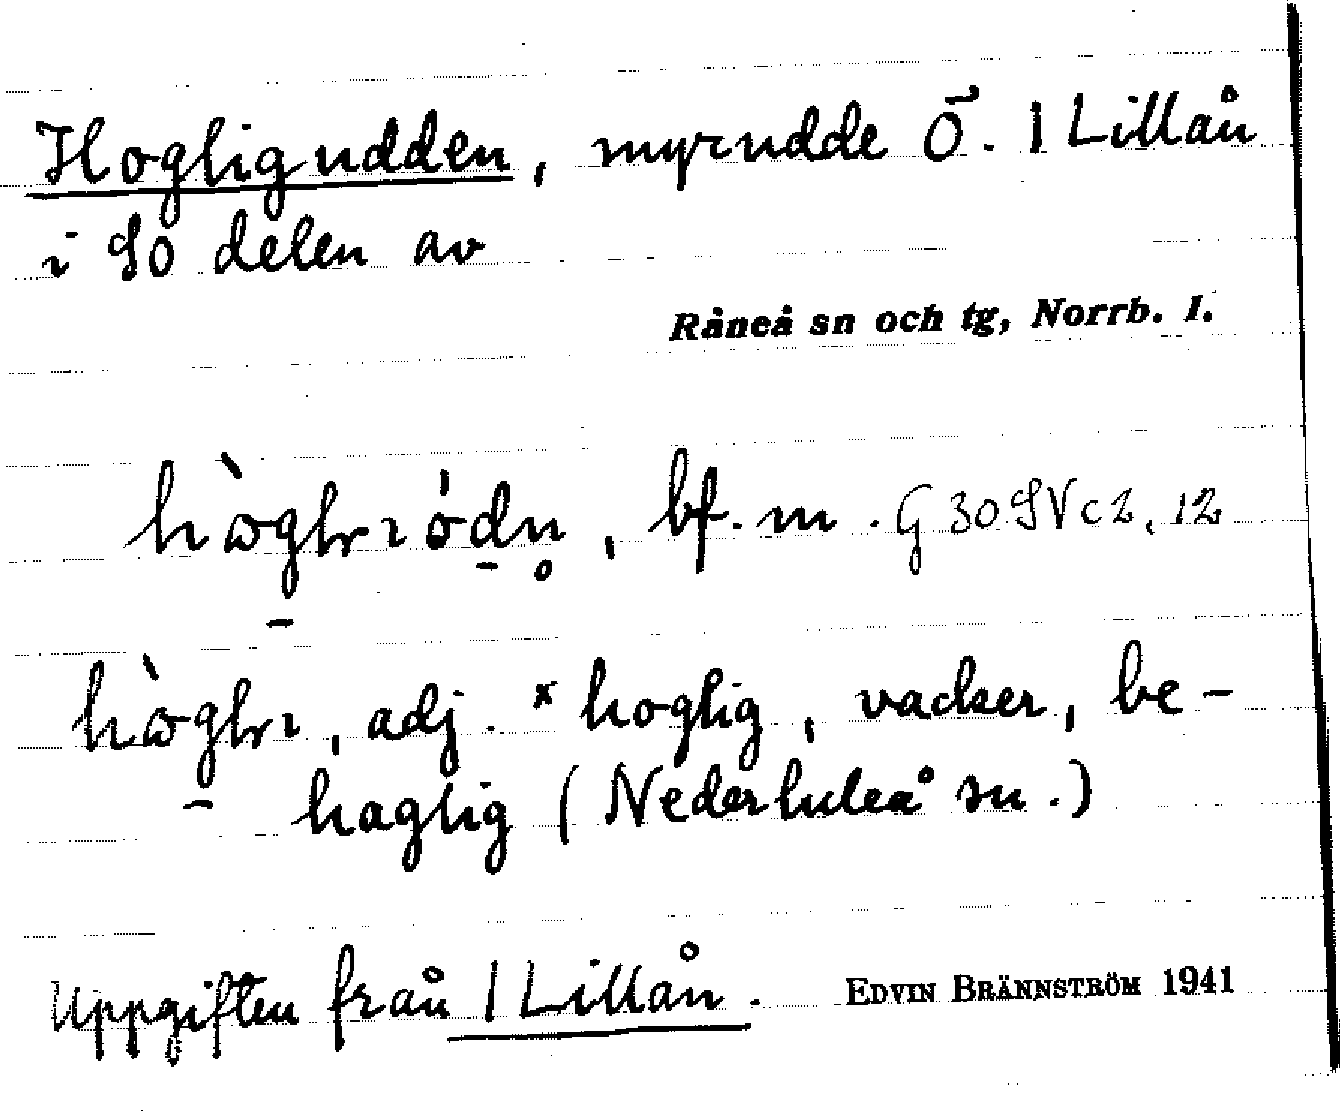 Hogligudden, myrudde Ö. 1 Lillån
i SO delen av
Råneå sn och tg, Norrb. l.
bf. m. G 30 SV c 2, 12
adj. × hoglig, vacker, be-
haglig (Nederluleå sn.)
Uppgiften från 1 Lillån.
EDVIN BRÄNNSTRÖM 1941